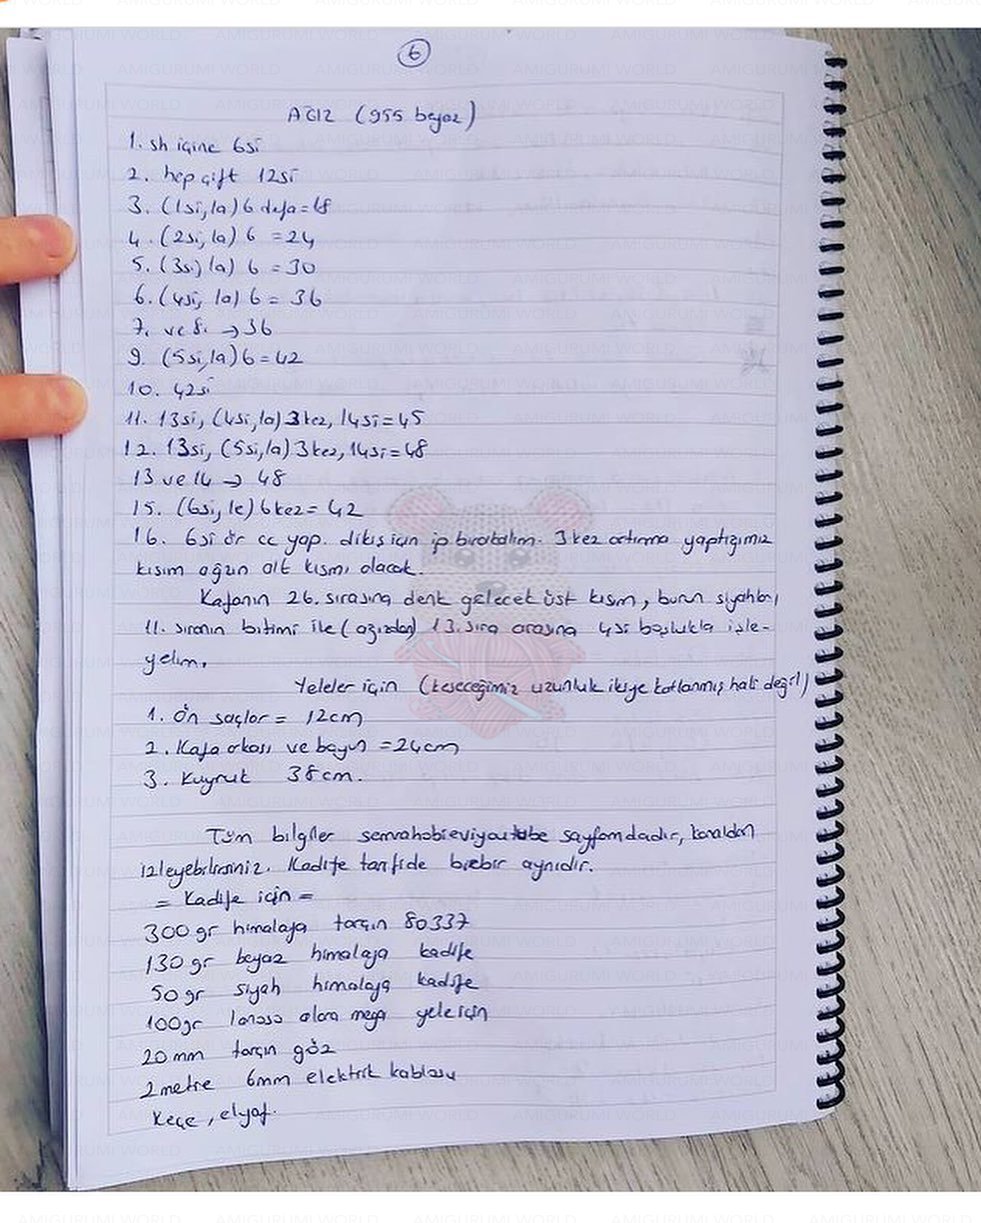 6
AĞIZ (955 beyaz)
1. sh içine 6si
2. hep çift 12si
3. (1si, 1a) 6 defa = 18
4. (2si, 1a) 6 = 24
5. (3si, 1a) 6 = 30
6. (4si, 1a) 6 = 36
7. ve 8. → 36
9. (5si, 1a) 6 = 42
10. 42si
11. 13si, (4si, 1a) 3 kez, 14si = 45
12. 13si, (5si, 1a) 3 kez, 14si = 48
13 ve 14 → 48
15. (6si, 1e) 6 kez = 42
16. 6si ör cc yap. dikiş için ip bırakalım. 3 kez artırma yaptığımız
kısım ağzın alt kısmı olacak.
Kafanın 26. sırasına denk gelecek üst kısım, burun siyahları
11. sıranın bitimi ile (ağızdan) 13. sıra arasına 4si boşlukla işle-
yelim.
Yeleler için (keseceğimiz uzunluk ikiye katlanmış hali değil)
1. Ön saçlar = 12cm
2. Kafa arkası ve boyun = 24cm
3. Kuyruk 38cm.
Tüm bilgiler semrahobieviyoutube sayfamdadır, kanaldan
izleyebilirsiniz. Kadife tarifide birebir aynıdır.
= Kadife için =
300gr himalaya tarçın 80337
130gr beyaz himalaya kadife
50gr siyah himalaya kadife
100gr lanoso alara mega yele için
20mm tarçın göz
2metre 6mm elektrik kablosu
Keçe, elyaf.
AMIGURUMI WORLD